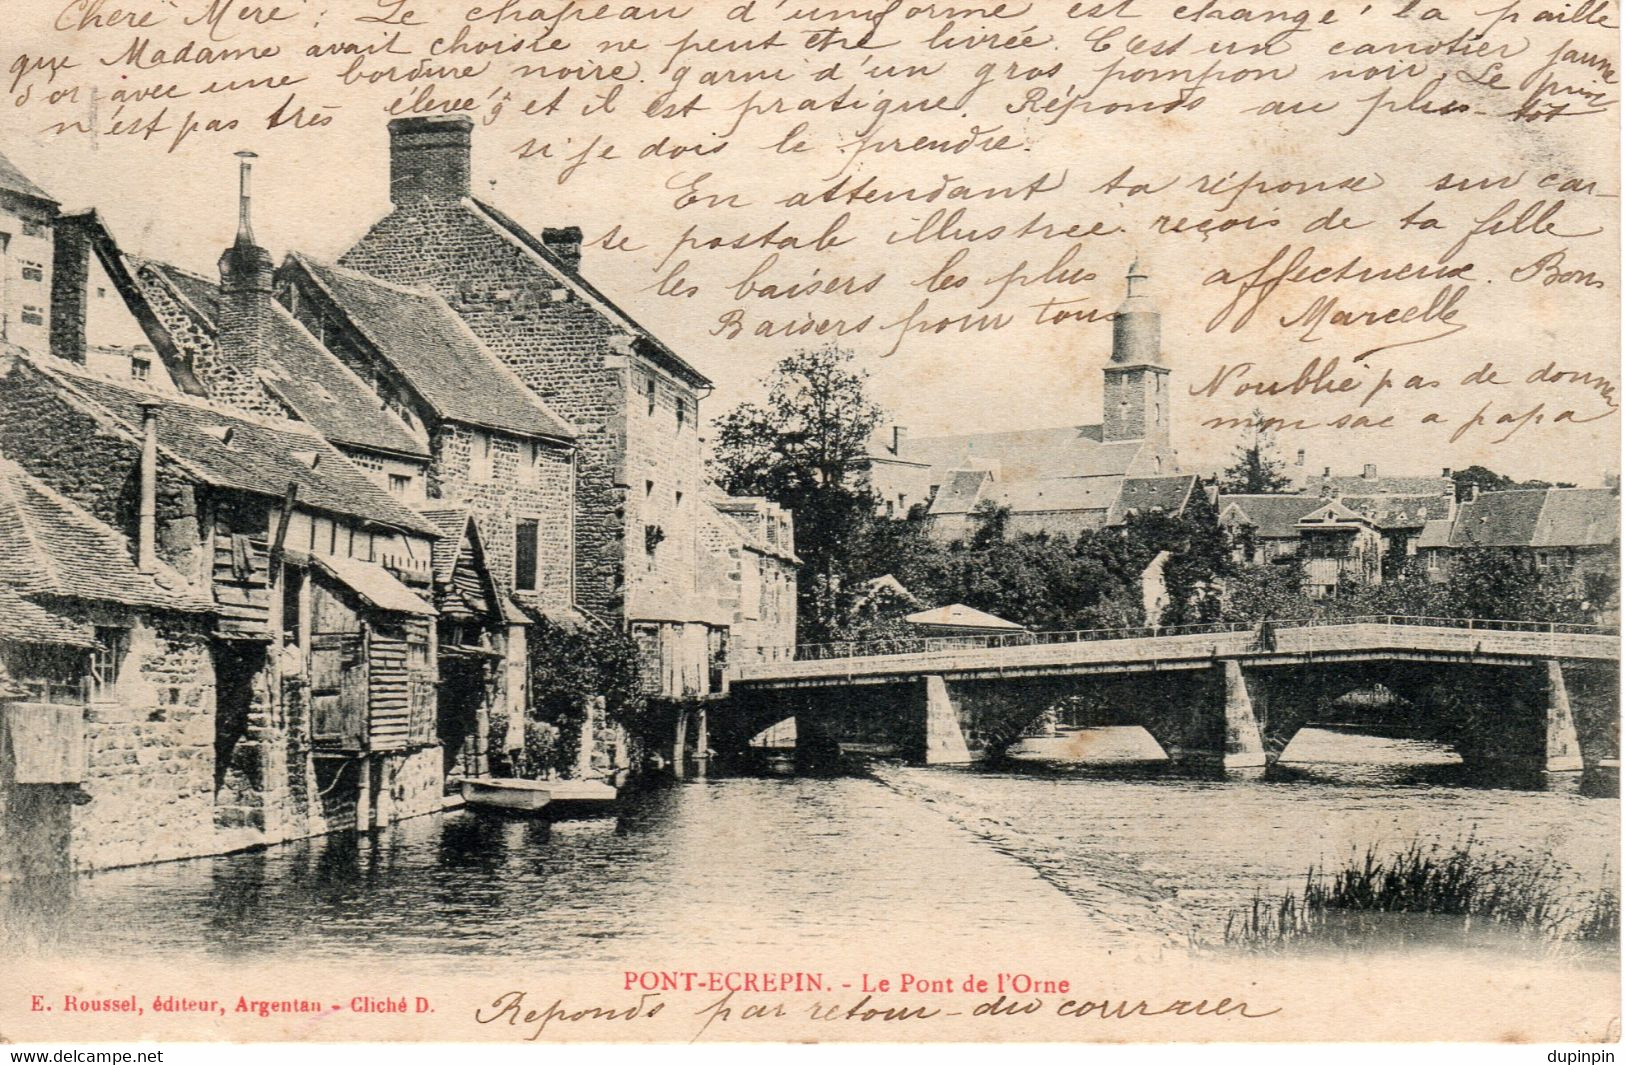 Chere Mere : Le chapeau d'uniforme est changé ! la paille
que Madame avait choisie ne peut être livrée. C'est un canotier jaune
d'or avec une bordure noire. garni d'un gros pompon noir. Le prix
n'est pas très élevé et il est pratique. Réponds au plus-tôt
si je dois le prendre.
En attendant ta réponse sur car-
te postale illustrée reçois de ta fille
les baisers les plus affectueux. Bons
Baisers pour tous Marcelle
N'oublie pas de donner
mon sac a papa
PONT-ECREPIN. - Le Pont de l'Orne
E. Roussel, éditeur, Argentan - Cliché D.
Reponds par retour-du courrier
delcampe.net
dupinpin